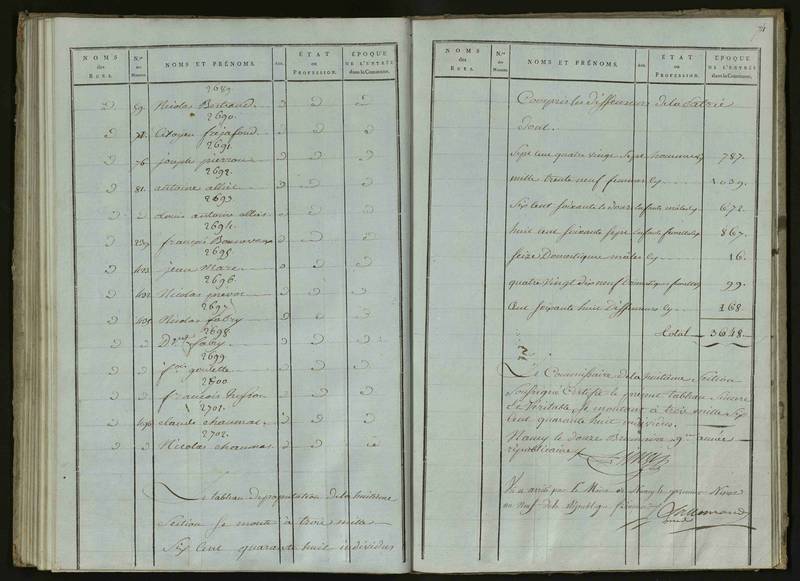 NOMS des RUES. N.os des Maisons. NOMS ET PRÉNOMS. AGE. ÉTAT ou PROFESSION. ÉPOQUE DE L'ENTRÉE dans la Commune.
2689.
59. Nicolas Bertrand.
2690.
citoyen frejafond
2691.
76. joseph pierron
2692.
81. antoine alliés
2693
Louis antoine alliés
2694.
239. françois
2695
jean Marc
2696.
Nicolas prevot
2697
Nicolas fabry
2698
D.que fabry
2699
goulette
2700
françois husson
2701.
claude chaumas
2702.
Nicolas chaumas
Le tableau de population de la huitieme
Section se monte à trois mille
Six Cent quarante huit individus
74
NOMS des RUES. N.os des Maisons. NOMS ET PRÉNOMS. AGE. ÉTAT ou PROFESSION. ÉPOQUE DE L'ENTRÉE dans la Commune.
Compris les deffenseurs de la Patrie
dont.
Sept cent quatre vingt Sept hommes cy 787.
mille trente neuf femmes cy 1039.
Six Cent soixante et douze Enfants mâles cy 672.
huit Cent soixante Sept Enfants femelles cy 867.
Seize Domestiques mâles cy 16.
quatre Vingt dix neuf Domestiques femelles 99.
Cent soixante huit deffenseurs cy 168.
total 3648.
Le Commissaire de la huitieme Section
Soussigné Certifie le present tableau Sincere
et Veritable, se montant à trois mille Six
Cent quarante huit individus.
Nancy le douze Brumaire 9me année
républicaine
Vu et arrêté par le Maire de Nancy le premier Nivose
an neuf de la République française